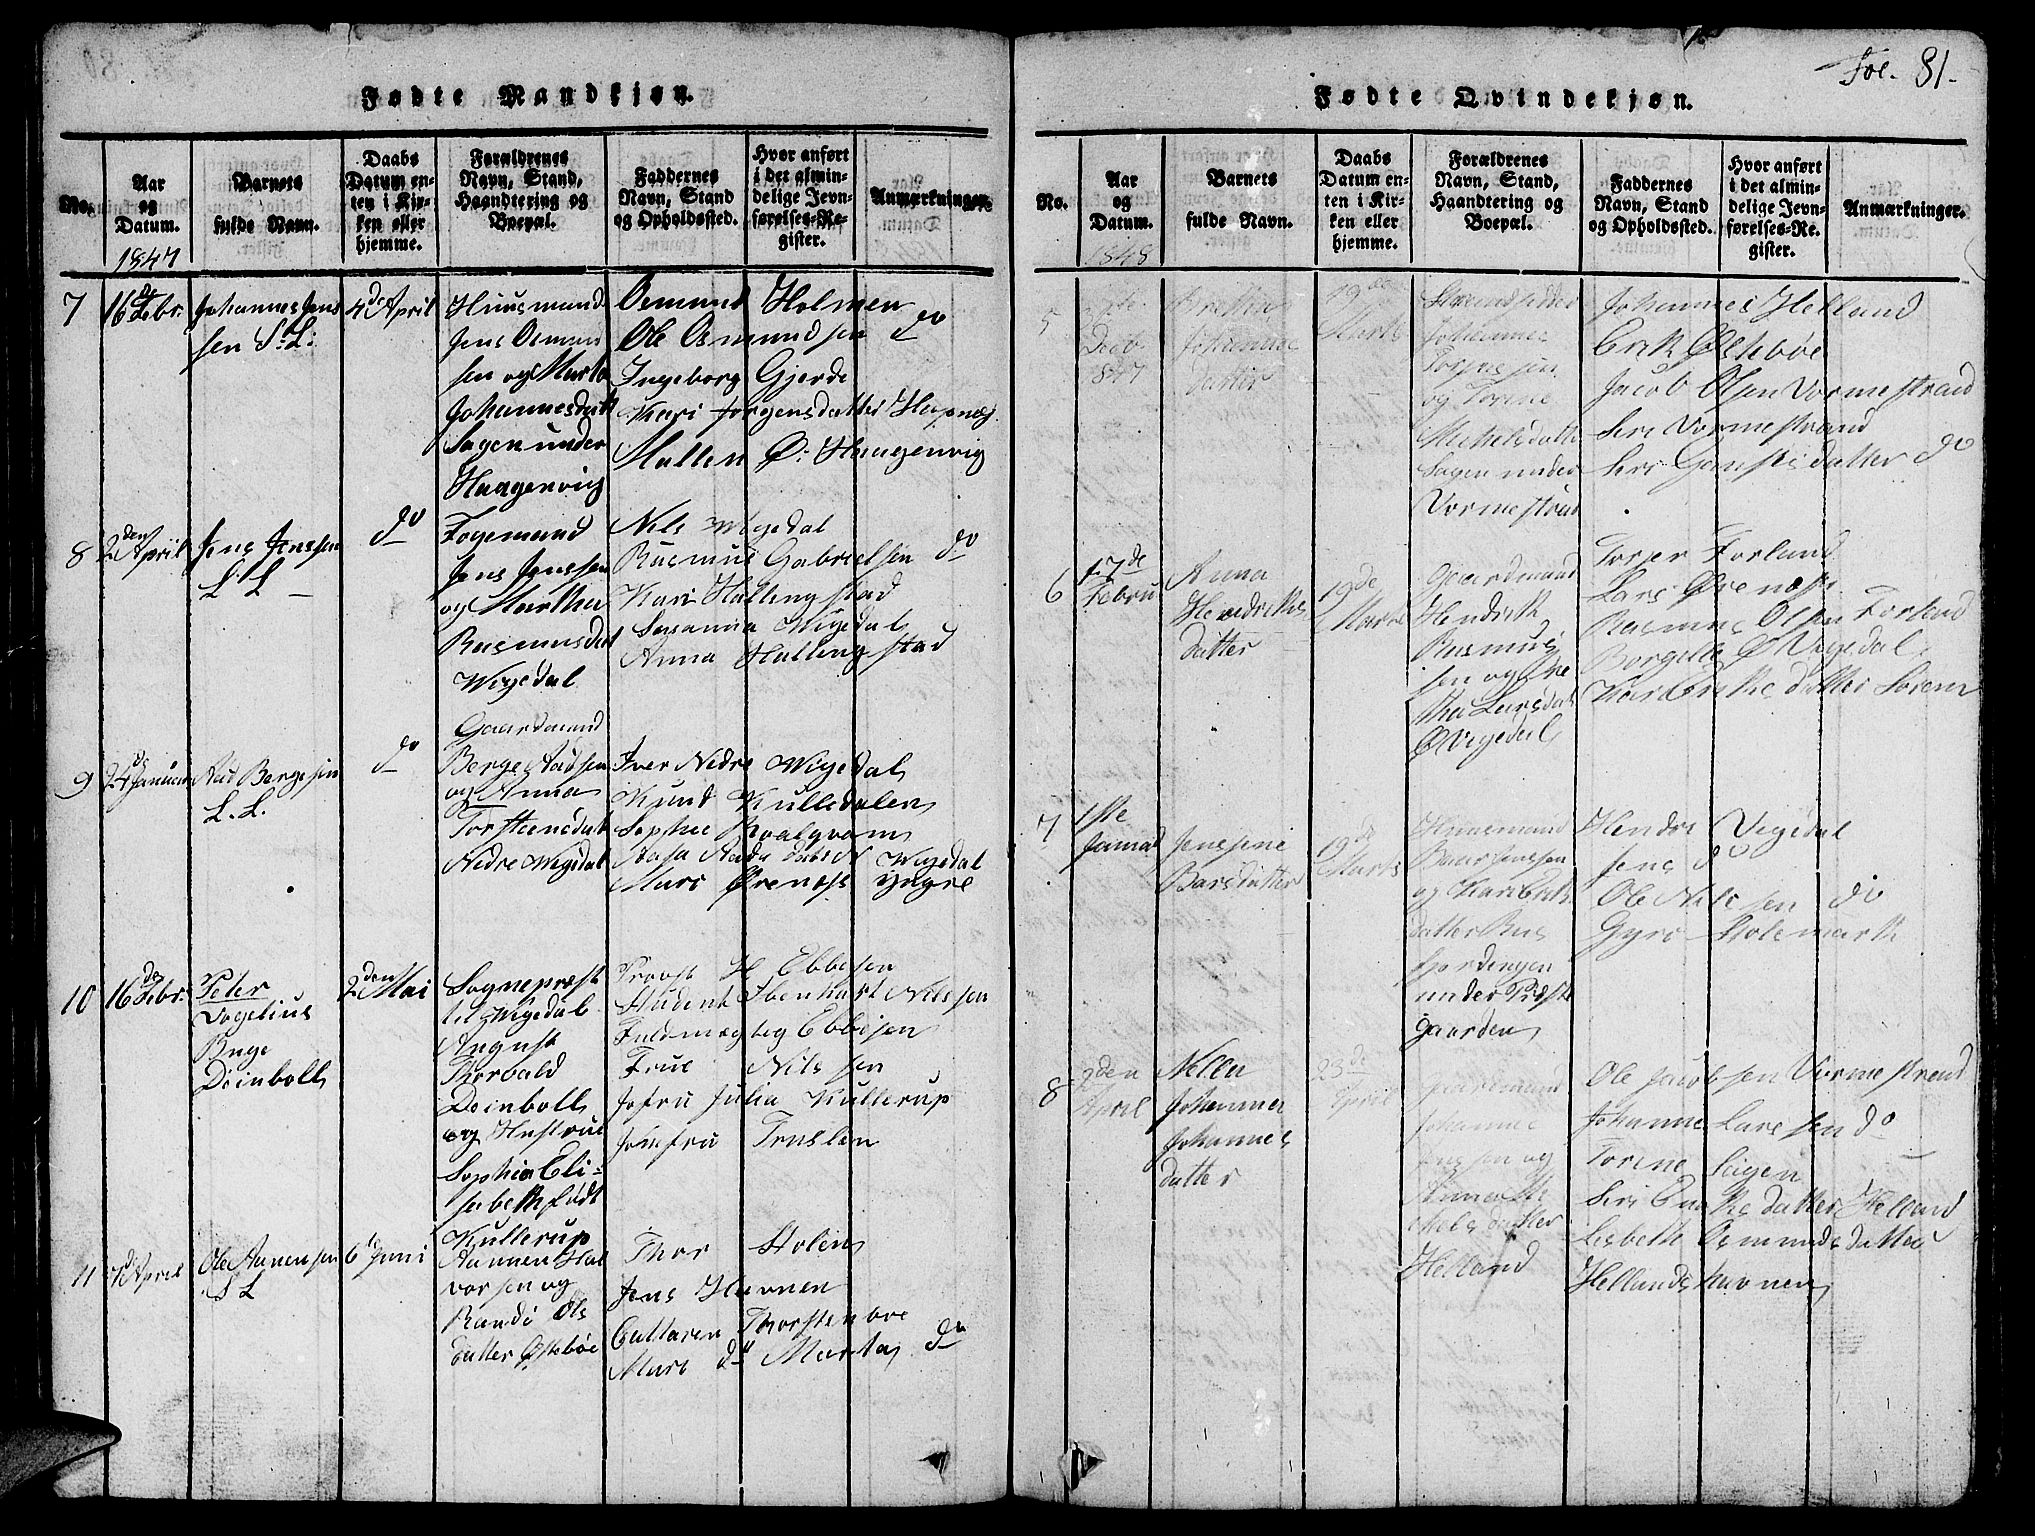 Fødte Mandkjøn.
No.
Aar
og
Datum.
1847
Barnets
fulde Navn.
Daabs
Datum en-
ten i Kir-
ken eller
hjemme.
Forældrenes
Navn, Stand,
Haandtering og
Boepæl.
Faddernes
Navn, Stand
og Opholdssted.
Hvor anført
i det almin-
delige Jevn-
førelses-Re-
gister.
Anmærkninger.
7
16de Febr.
Johannes Jens
sen S. L.
4de April
Huusmand
Jens Osmund
sen og Marta
Johannesdatt
Sagen under
Haagenvig
Osmund Holmen
Ole Osmundsen do
Ingeborg Gjerde
Kari Jorgensdatter Hapnæs
Mallen Ø: Haagenvig
8
2den April
Jens Jenssen
L L
do
Fogemand
Jens Jenssen
og Martha
Rasmusdat
Wigedal
Nils Wigedal
Rasmus Gabrielsen do
Kari Hallingstad
Susanna Wigedal
Anna Hallingstad
9
24de Januar
Aad Bergesen
L. L.
do
Gaardmand
Berge Aadsen
og Anna
Torstensdat
Nedre Wigedal
Iver Nedre Wigedal
Knud Kulledalen
Sophie Kvalqvam
Aasa Aadsdatt N Wigedal
Mari Ørenæs yngre
10
16de Febr.
Peter
Vogelius
Buge
Deinboll
2den Mai
Sognepræst
til Wigedal
August
Thorvald
Deinboll
og Hustrue
Sophia Eli-
sabeth født
Kullerup
Provst H Ebbesen
Student Ibenhart Nilssen
Fuldmægtig Ebbesen
Frue Nilssen
Jofru Julia Kullerup
Jomfru Truslen
11
7de April
Ole Aanensen
S L
6te Juni
Aanen Hal
vorsen og
Randi Ols
datter Østebøe
Thor Stolen
Jens Havnen
Guttaren Thorstenboe
Mari do Marta do
Fol. 81.
Fødte Qvindekjøn.
No.
Aar
og
Datum.
1848
Barnets
fulde Navn.
Daabs
Datum en-
ten i Kir-
ken eller
hjemme.
Forældrenes
Navn, Stand,
Haandtering og
Boepæl.
Faddernes
Navn, Stand
og Opholdssted.
Hvor anført
i det almin-
delige Jevn-
førelses-Re-
gister.
Anmærkninger.
5
Decb
1847
Johanne
datter
19de
Marts
Strandsidder
Johannes
og Torine
Michelsdatte
Sagen under
Vormestrand
Johannes Helland
Erik Østebøe
Jacob Olsen Vormestrand
Siri Vormestrand
Siri datter do
6
17de
Febru
Anna
Hendriks
datter
19de
Marts
Gaardmand
Hendrik
Rasmus
sen og Gre
tha Larsdat
ØVigedal
Torger Forland
Lars Ørenæs
Rasmus Olsen Forland
Borgilla ØVigedal
Kari Eriksdatter Soren
7
1ste
Januar
Jensine
Barsdatter
19de
Marts
Huusmand
Baar Jenssen
og Kari Eriks
datter Rus
Gjordingen
under Præste
gaarden
Hendri Vigedal
Jens do
Ole Nilsen do
Gyro Stolemark
8
2den
April
Nellu
Johanna
Johannes
datter
23de
April
Gaardmand
Johannes
Jenssen og
Anna Mi
chelsdatter
Helland
Ole Jacobsen Vormestrand
Johanne Larssen do
Torine Sagen
Siri datter Helland
Lisbeth Osmundsdatter
Hellandshavnen